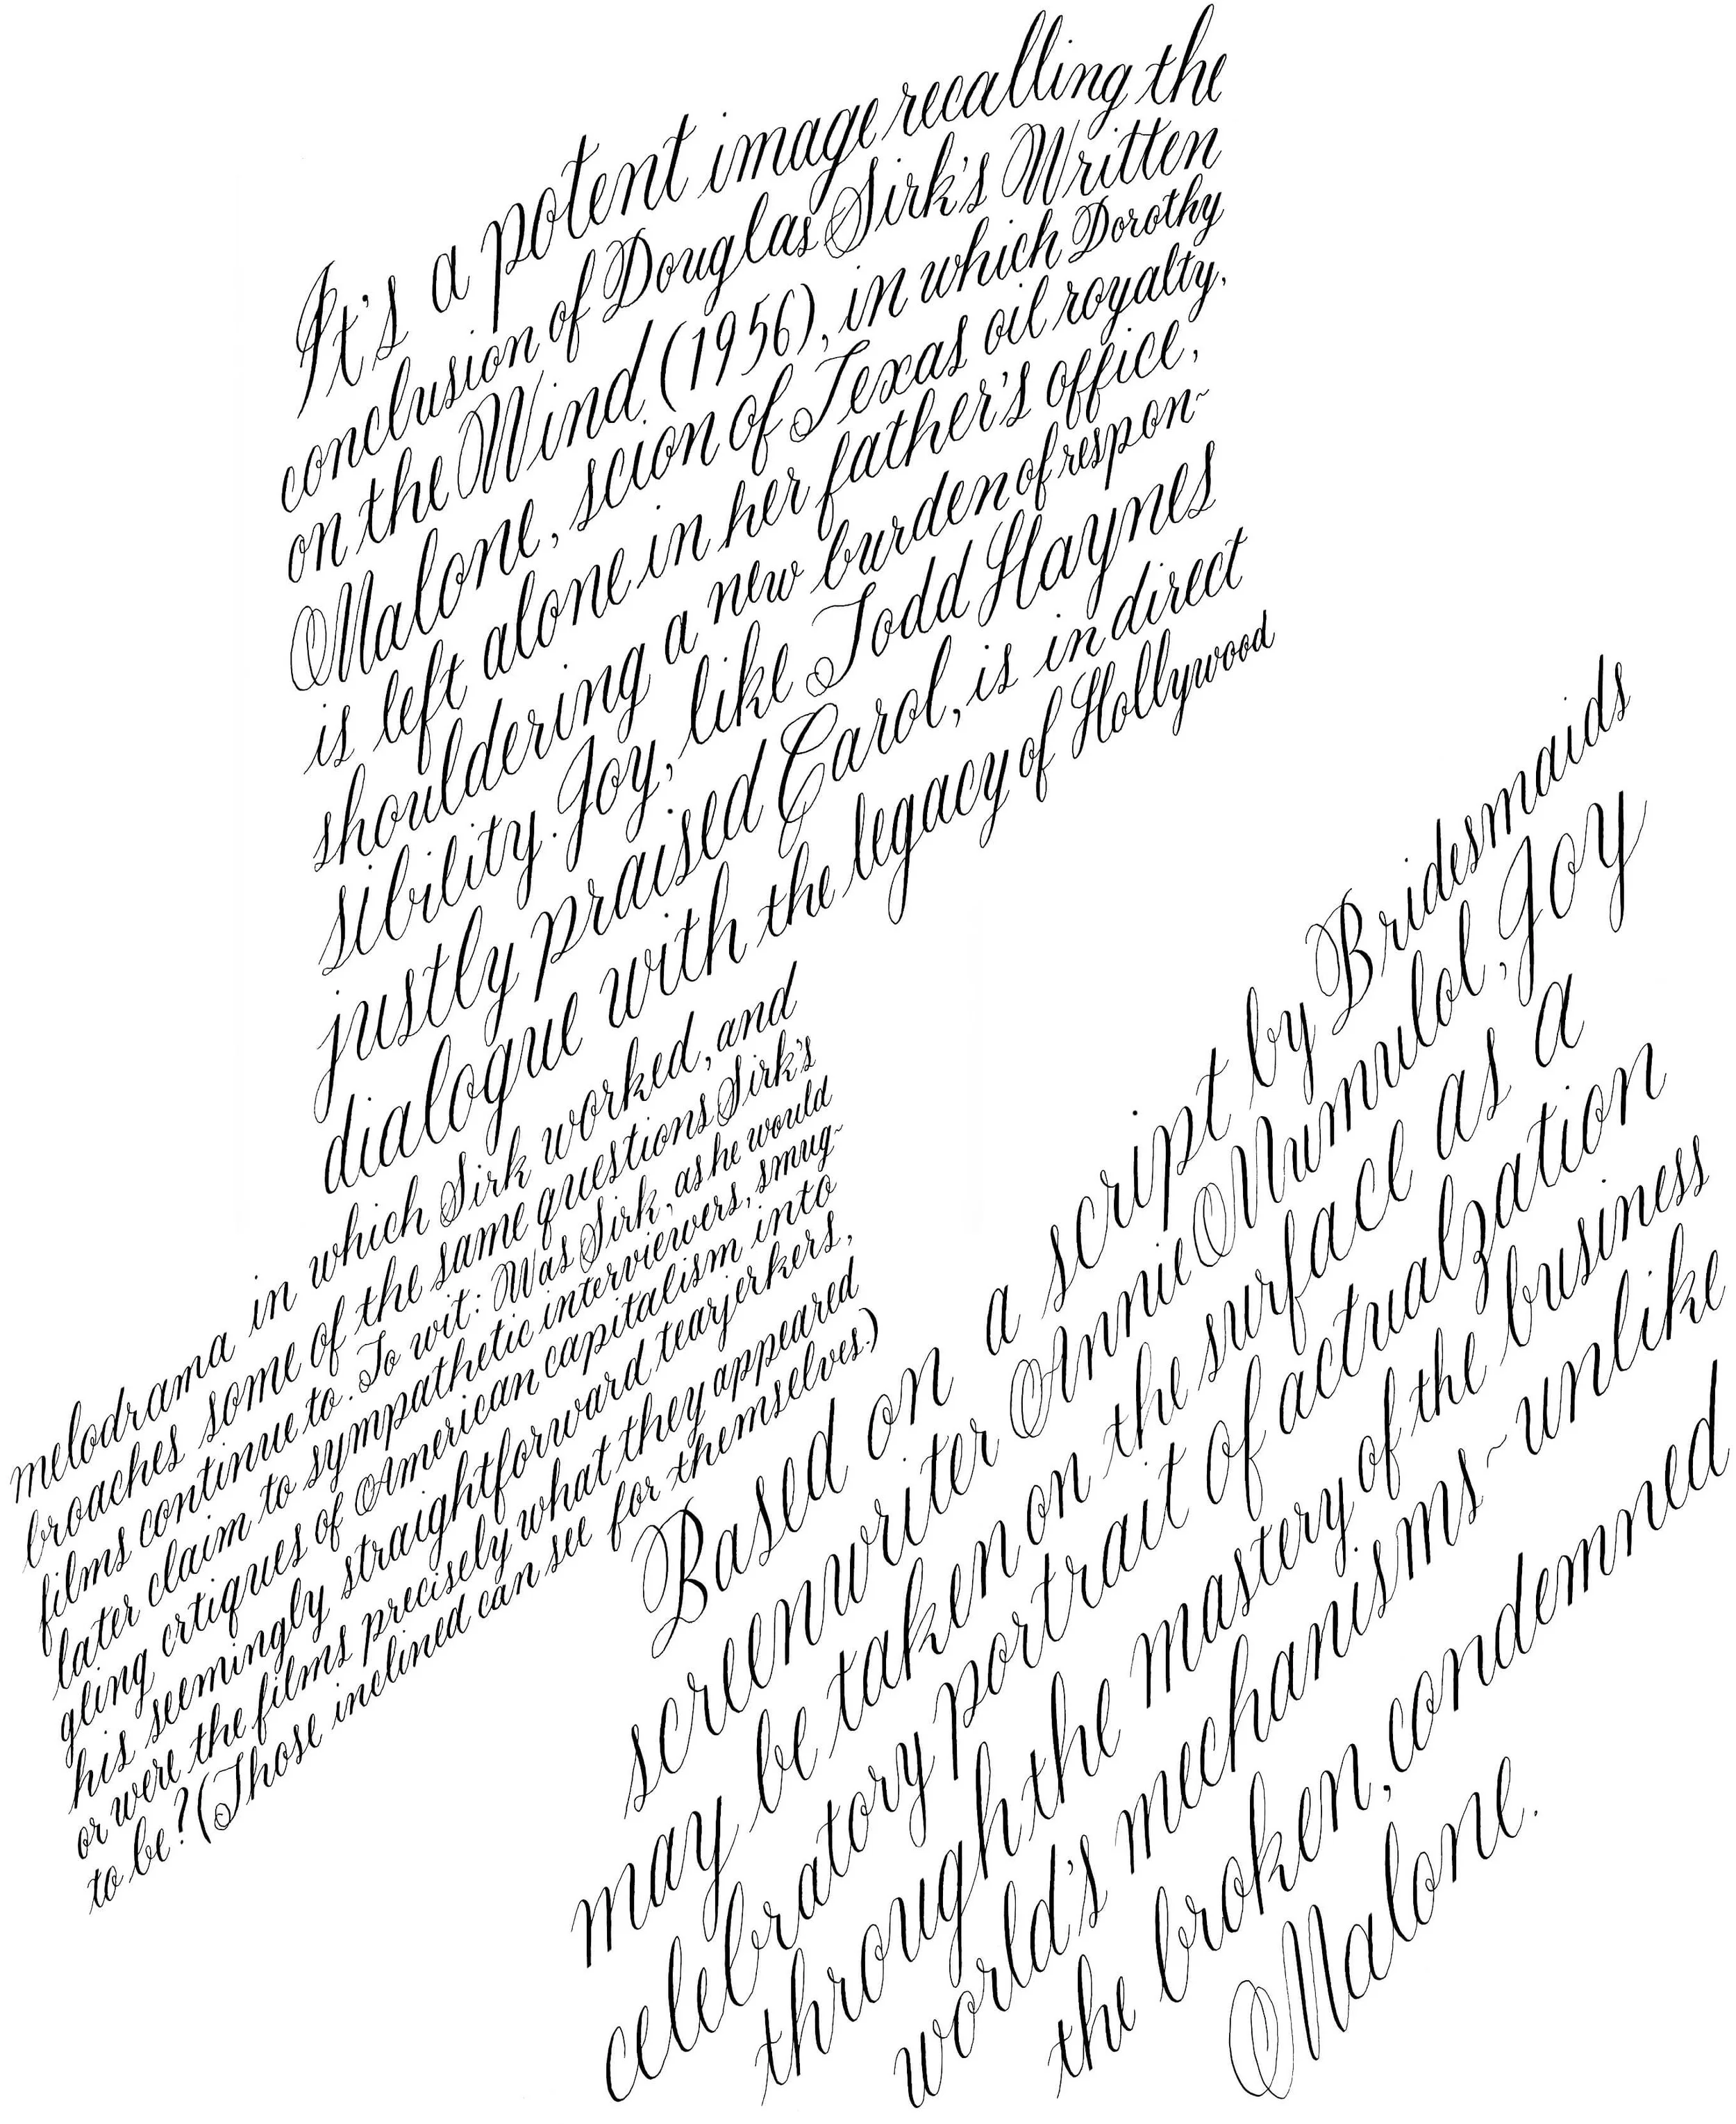 It's a potent image recalling the
conclusion of Douglas Sirk's Written
on the Wind (1956), in which Dorothy
Malone, scion of Texas oil royalty,
is left alone in her father's office,
shouldering a new burden of respon-
sibility. Joy, like Todd Haynes
justly praised Carol, is in direct
dialogue with the legacy of Hollywood
melodrama in which Sirk worked, and
broaches some of the same questions Sirk's
films continue to. To wit: Was Sirk, as he would
later claim to sympathetic interviewers, smug-
gling crtiques of American capitalism into
his seemingly straightforward tearjerkers,
or were the films precisely what they appeared
to be? (Those inclined can see for themselves.)
Based on a script by Bridesmaids
screenwriter Annie Mumulol, Joy
may be taken on the surface as a
celebratory portrait of actualzation
through the mastery of the business
world's mechanisms - unlike
the broken, condemned
Malone.